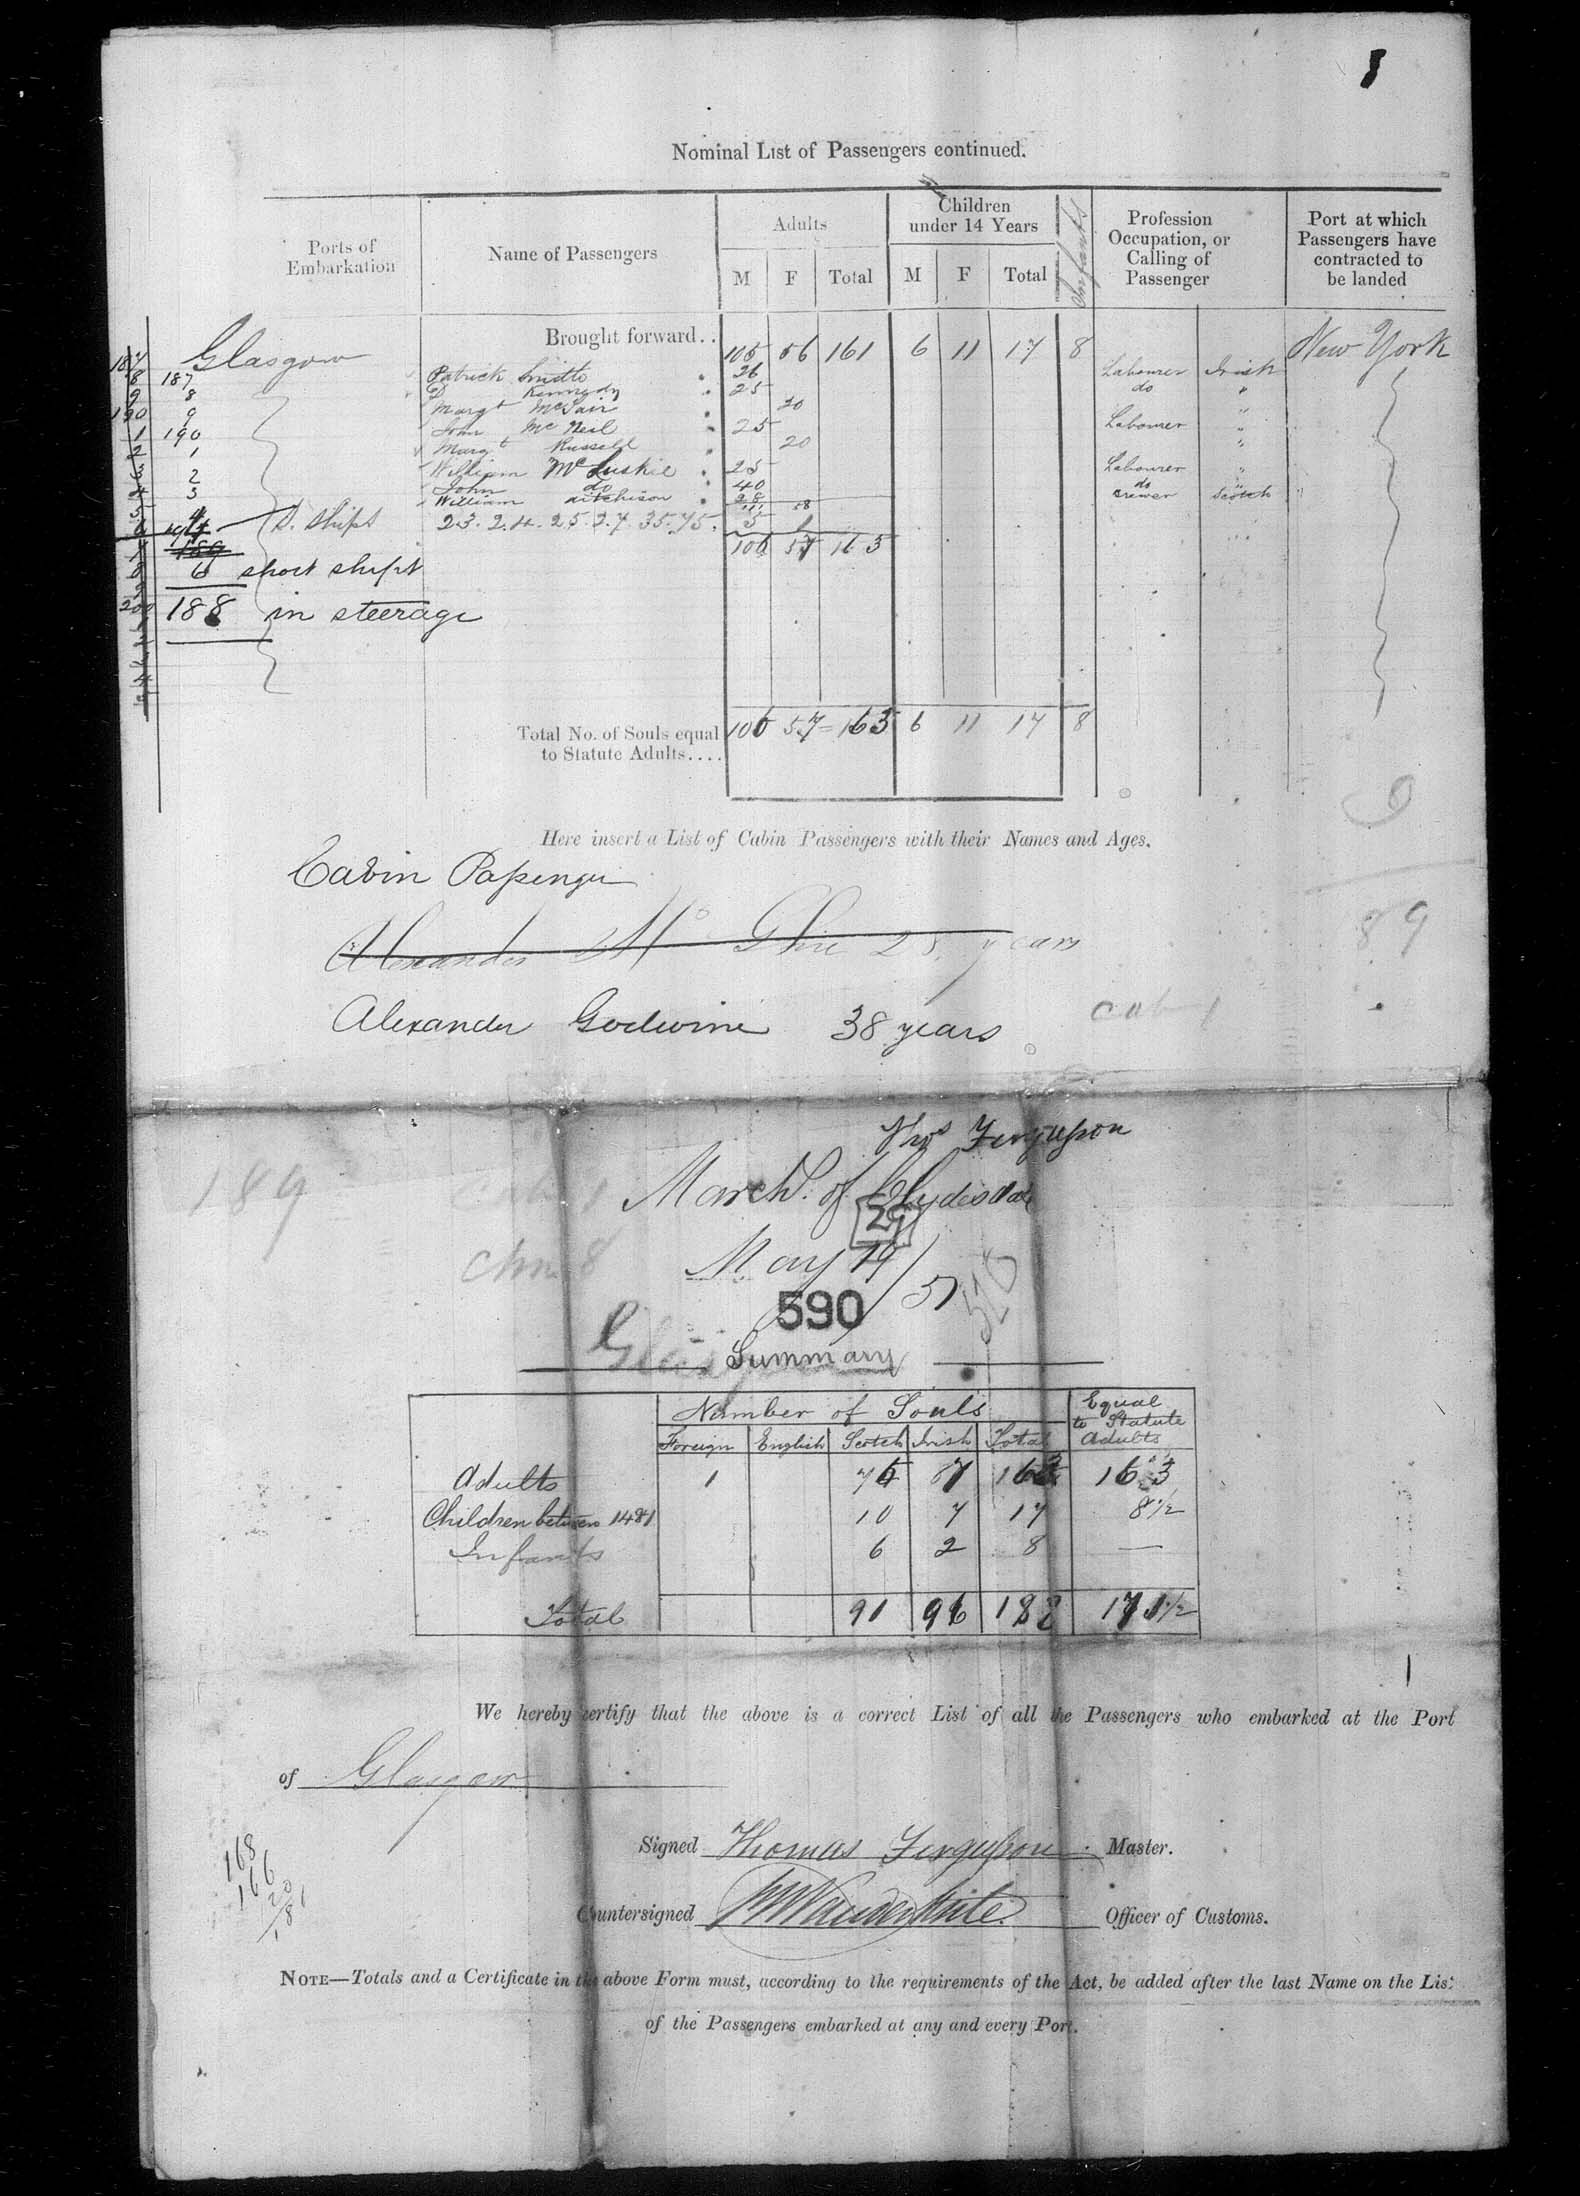 Nominal List of Passengers continued.
Ports of Embarkation
Name of Passengers
Adults
Children under 14 Years
Infants
Profession Occupation, or Calling of Passenger
Port at which Passengers have contracted to be landed
M F Total M F Total
Glasgow Brought forward.. 105 56 161 6 11 17 8 New York
187 Patrick Smith 26 Labourer Irish
8 Kennedy 25 do "
9 Margt McNair 20 "
190 John McNeil 25 Labourer "
1 Margt Russell 20 "
2 William McLuskie 25 Labourer "
3 John do 40 do "
4 William Aitchison 28 Brewer Scotch
S. Shipt 23. 24. 25. 27. 35. 75. 5 1
106 57 163
6 short shipt
188 in steerage
Total No. of Souls equal to Statute Adults.... 106 57 = 163 6 11 17 8
Here insert a List of Cabin Passengers with their Names and Ages.
Cabin Passenger
Alexander McGhie 28 years
Alexander Godwine 38 years
cab 1
89
Thos Fergusson
189 cab 1 March. of Clydesdale
29
chn 8 May 19/57
590
Glasgow
Summary
Number of Souls
Equal to Statute Adults
Foreign English Scotch Irish Total
Adults 1 75 87 163 163
Children between 14 & 1 10 7 17 8½
Infants 6 2 8 —
Total 91 96 188 171½
We hereby certify that the above is a correct List of all the Passengers who embarked at the Port
of Glasgow
Signed Thomas Fergusson Master.
Countersigned Officer of Customs.
168
166
20
181
NOTE—Totals and a Certificate in the above Form must, according to the requirements of the Act, be added after the last Name on the List
of the Passengers embarked at any and every Port.